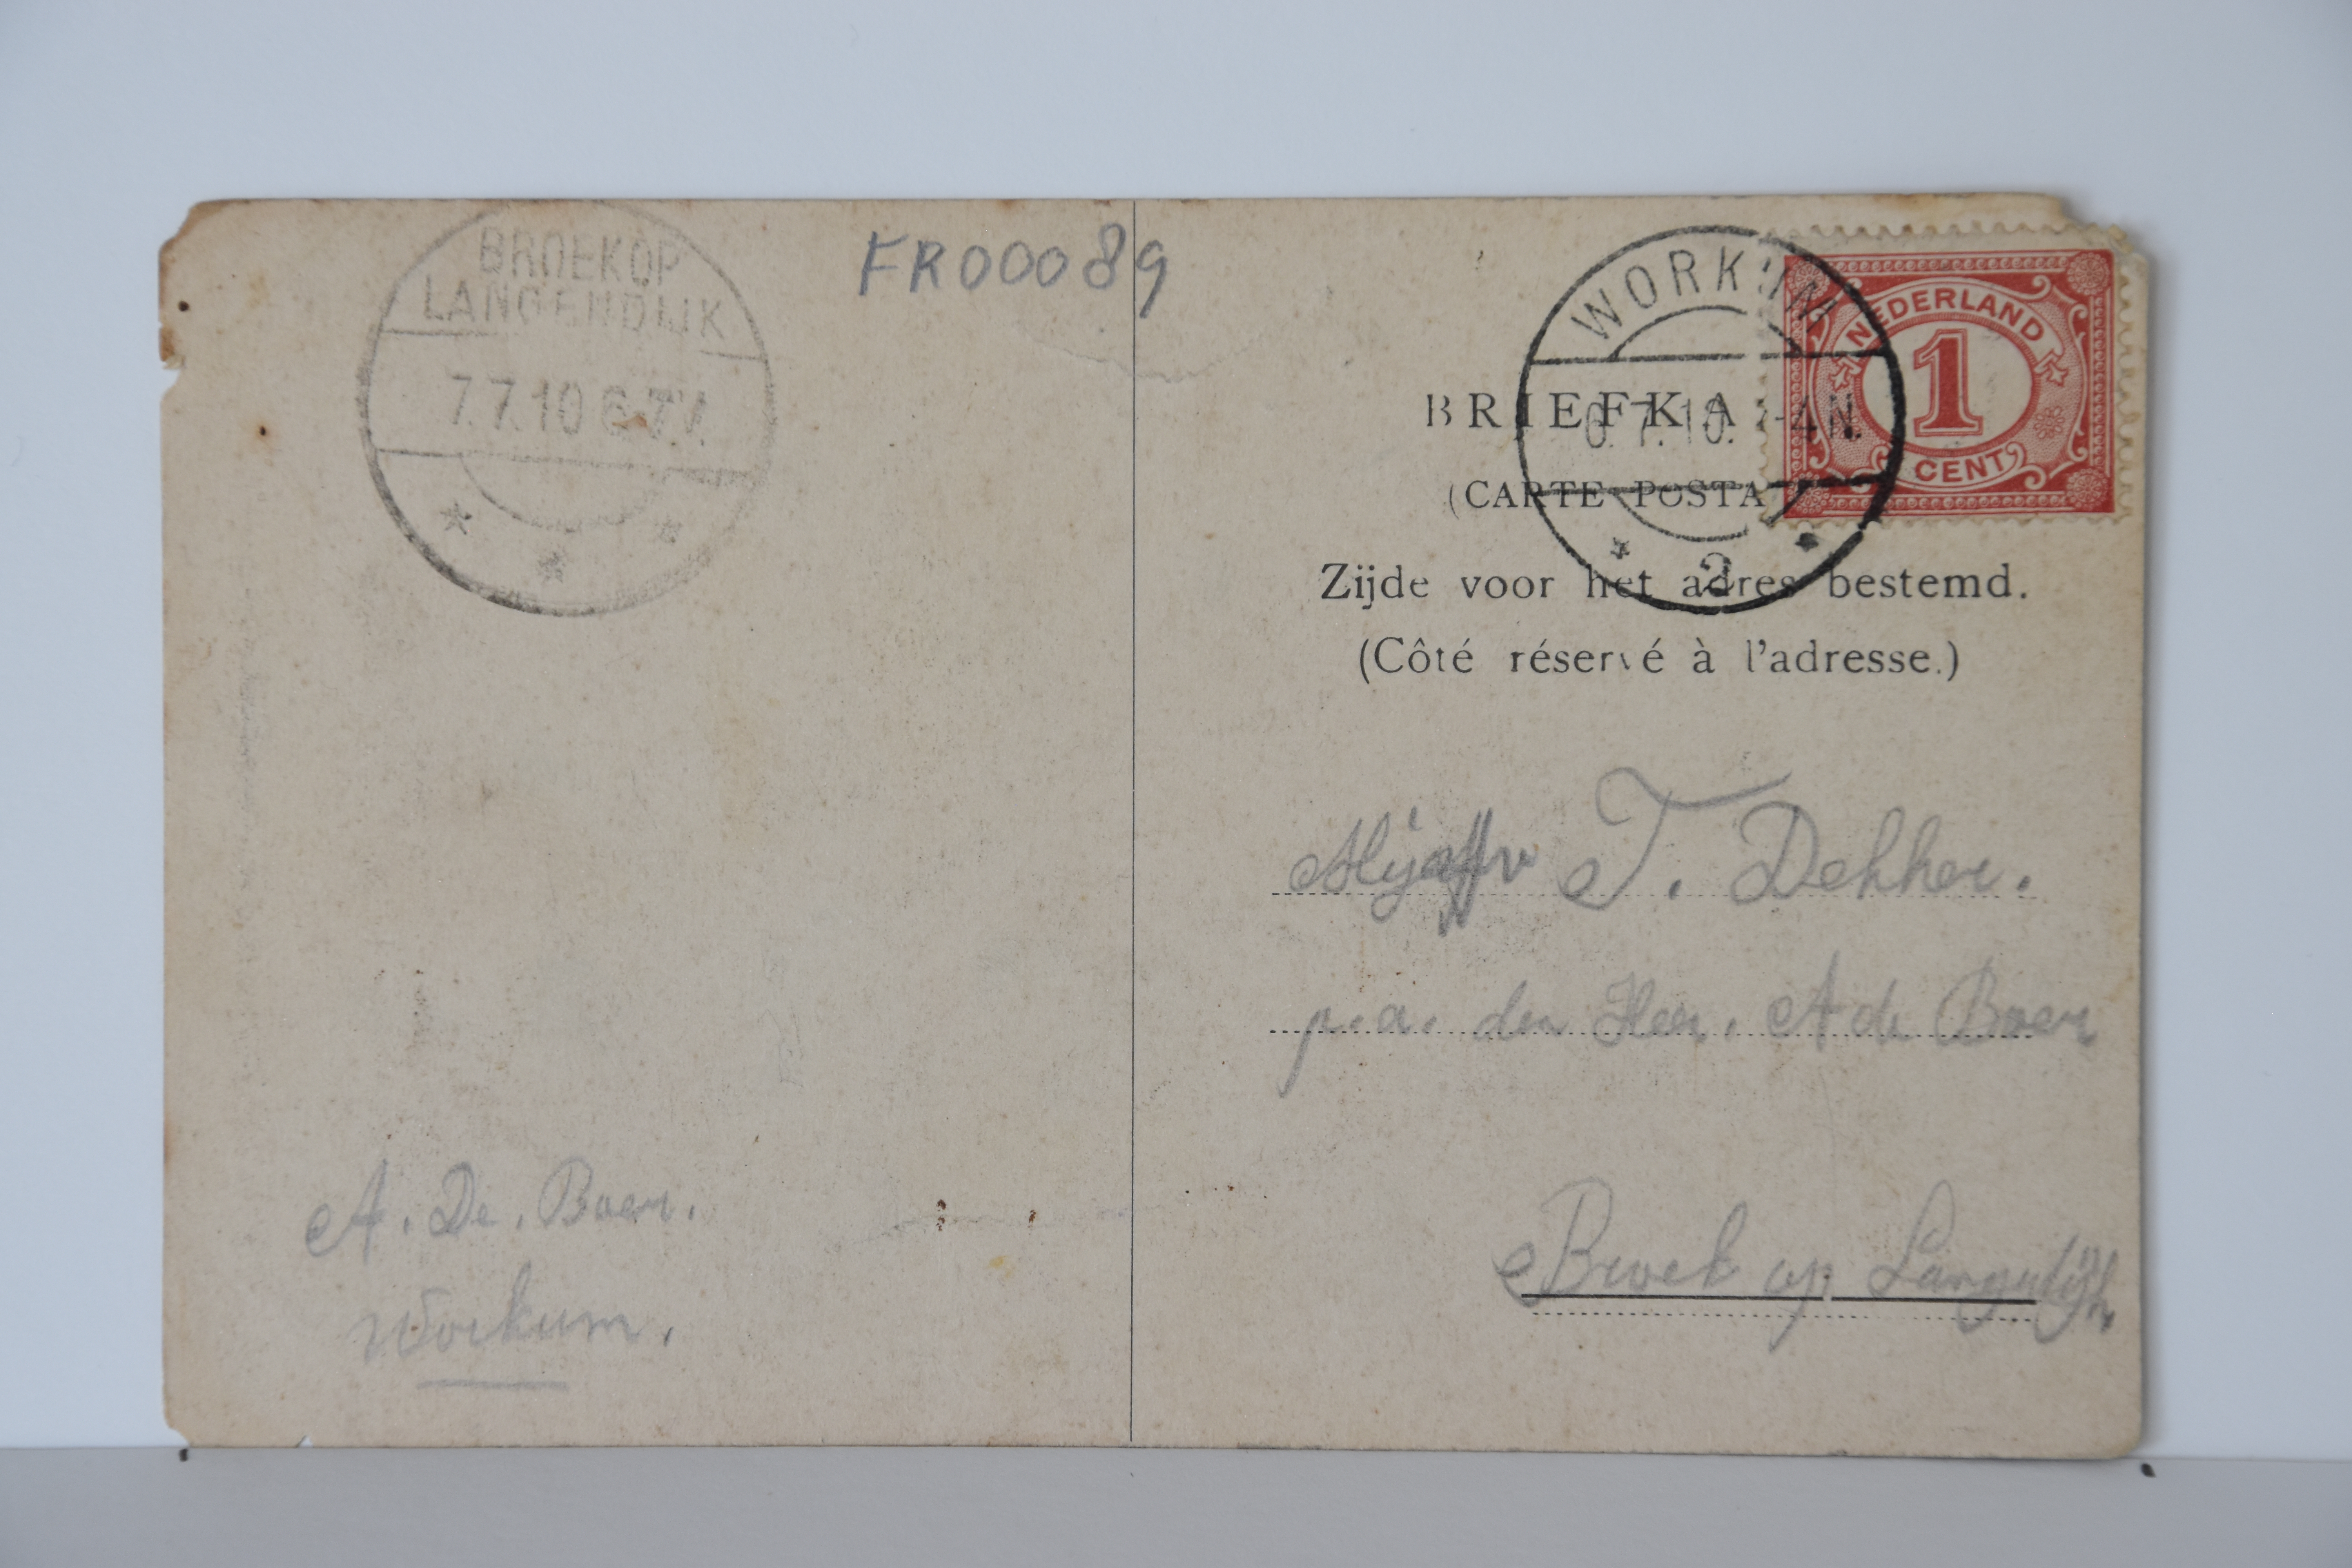 BROEK OP
LANGENDIJK
7.7.10
FR00089
WORKUM
7.10. -4N.
2
NEDERLAND
1
CENT
BRIEFKA
(CARTE POSTA
Zijde voor het adres bestemd.
(Côté réservé à l'adresse.)
T. Dekker.
p.a. den Heer. A de Boer
Broek op
A. De. Boer.
Workum.